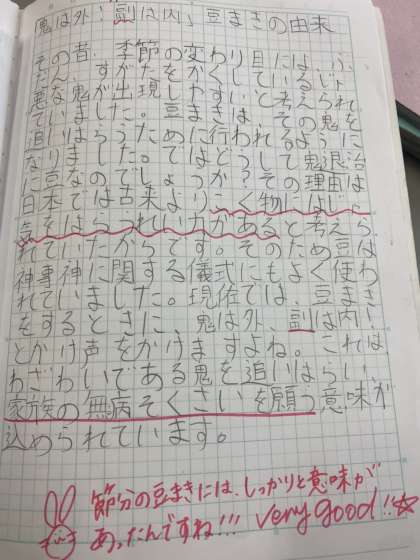 鬼は外!副は内!豆まきの由来
その昔、季節の変わり目には、ふ
だん、すがたをかくしているじゃ
悪な鬼が出現しやすいと考えられ
ていました。豆まきは、その鬼を
追いはらうために行われるように
なりました。ではどうして鬼退治
に豆なのでしょうか?その理由は
日本では古来よりこく物にはじゃ
気をはらうれい力があると考えら
れていたからです。そのため豆は
神事神に関する儀式にもよく使わ
れていました。現在では、豆まき
をするときに、鬼は外、副は内!
とかけ声をかけますよね。これは
わざわいである鬼を追いはらい、
家族の無病そくさいを願う意味が
込められています。
節分の豆まきには、しっかりと意味が
あったんですね!!! very good!!